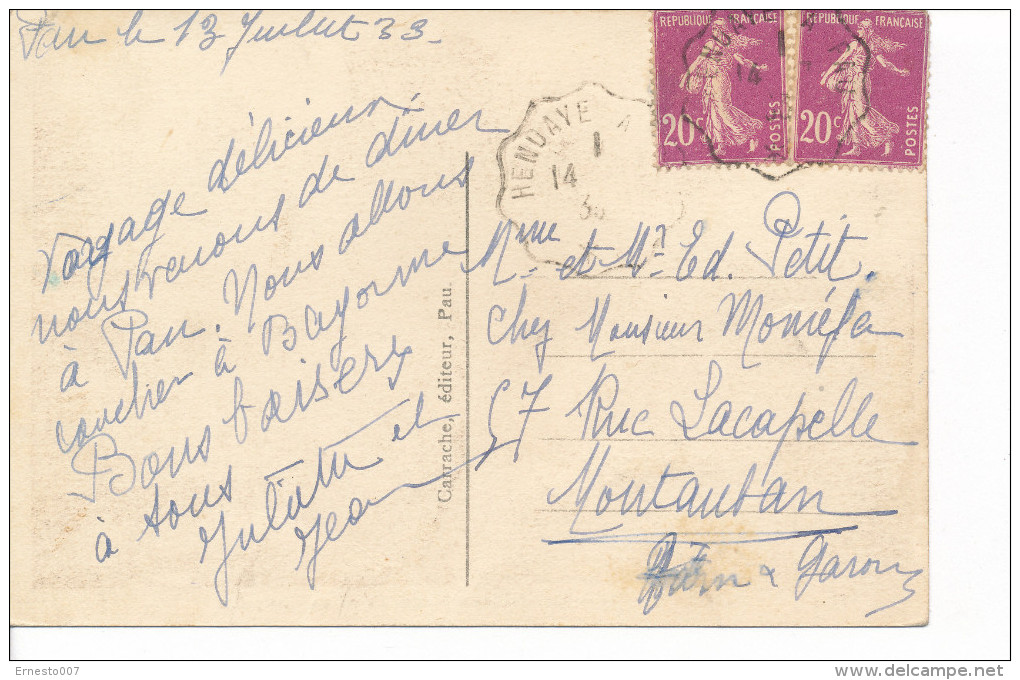 Pau le 13 Juillet 33.
Voyage délicieux.
nous venons de dîner
à Pau. Nous allons
coucher à Bayonne
Bons baisers
à tous
Juliette et
Jean
Carrache, éditeur, Pau
REPUBLIQUE FRANÇAISE
20c
POSTES
REPUBLIQUE FRANÇAISE
20c
POSTES
HENDAYE A
1
14
Mme et Mr Ed. Petit.
Chez Monsieur
57 Rue Lacapelle
Montauban
Tarn & Garonne
Ernesto007
www.delcampe.net